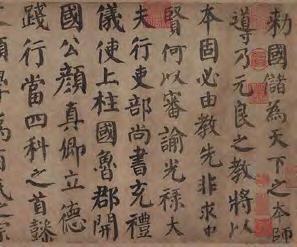 勅國儲為天下之本師
導乃元良之教將以
本固必由教先非求忠
賢何以審諭光祿大
夫行吏部尚書充禮
儀使上柱國魯郡開
國公顏真卿立德
踐行當四科之首懿
碩學為百氏之宗